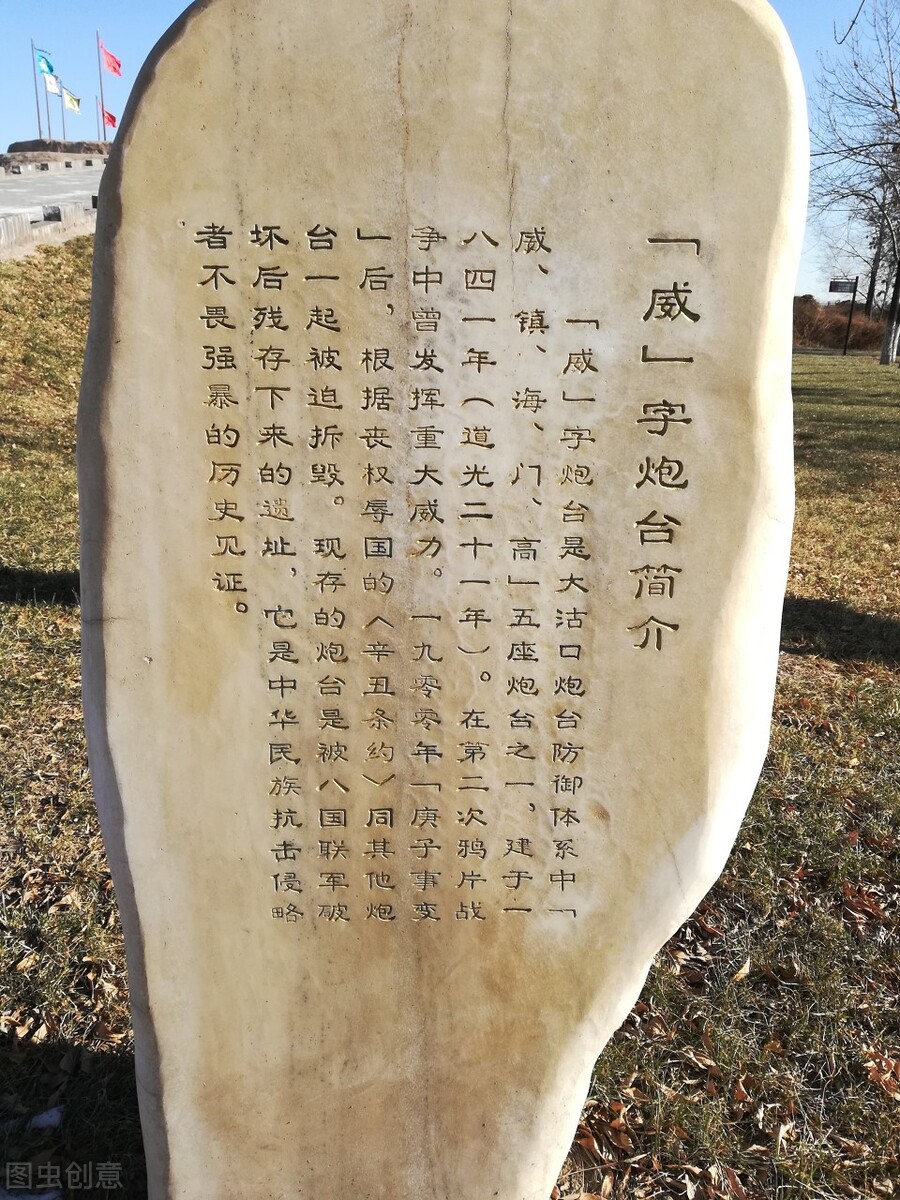 「威」字炮台简介
「威」字炮台是大沽口炮台防御体系中「
威、镇、海、门、高」五座炮台之一，建于一
八四一年（道光二十一年）。在第二次鸦片战
争中曾发挥重大威力。一九零零年「庚子事变
」后，根据丧权辱国的〈辛丑条约〉同其他炮
台一起被迫拆毁。现存的炮台是被八国联军破
坏后残存下来的遗址，它是中华民族抗击侵略
者不畏强暴的历史见证。
图虫创意